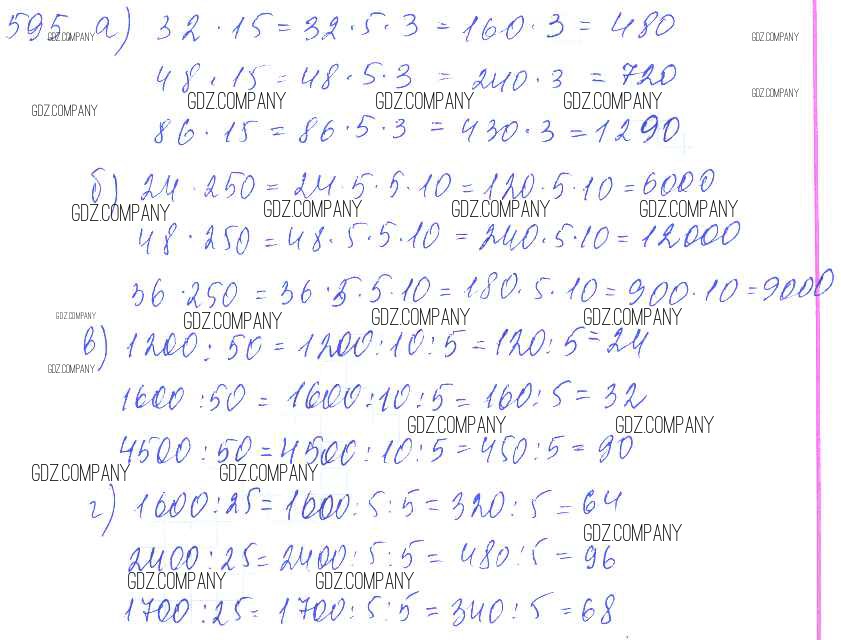 595 а) 32 · 15 = 32 · 5 · 3 = 160 · 3 = 480
GDZ.COMPANY GDZ.COMPANY
48 · 15 = 48 · 5 · 3 = 240 · 3 = 720
GDZ.COMPANY GDZ.COMPANY GDZ.COMPANY GDZ.COMPANY
GDZ.COMPANY
86 · 15 = 86 · 5 · 3 = 430 · 3 = 1290
б) 24 · 250 = 24 · 5 · 5 · 10 = 120 · 5 · 10 = 6000
GDZ.COMPANY GDZ.COMPANY GDZ.COMPANY GDZ.COMPANY
48 · 250 = 48 · 5 · 5 · 10 = 240 · 5 · 10 = 12000
36 · 250 = 36 · 5 · 5 · 10 = 180 · 5 · 10 = 900 · 10 = 9000
GDZ.COMPANY GDZ.COMPANY GDZ.COMPANY GDZ.COMPANY
в) 1200 : 50 = 1200 : 10 : 5 = 120 : 5 = 24
GDZ.COMPANY
1600 : 50 = 1600 : 10 : 5 = 160 : 5 = 32
GDZ.COMPANY GDZ.COMPANY
4500 : 50 = 4500 : 10 : 5 = 450 : 5 = 90
GDZ.COMPANY GDZ.COMPANY
г) 1600 : 25 = 1600 : 5 : 5 = 320 : 5 = 64
GDZ.COMPANY
2400 : 25 = 2400 : 5 : 5 = 480 : 5 = 96
GDZ.COMPANY GDZ.COMPANY
1700 : 25 = 1700 : 5 : 5 = 340 : 5 = 68